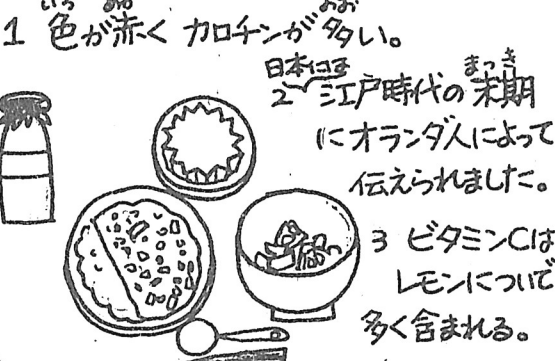 1 色が赤く カロチンが多い。
日本には
2 江戸時代の末期
にオランダ人によって
伝えられました。
3 ビタミンCは
レモンについで
多く含まれる。